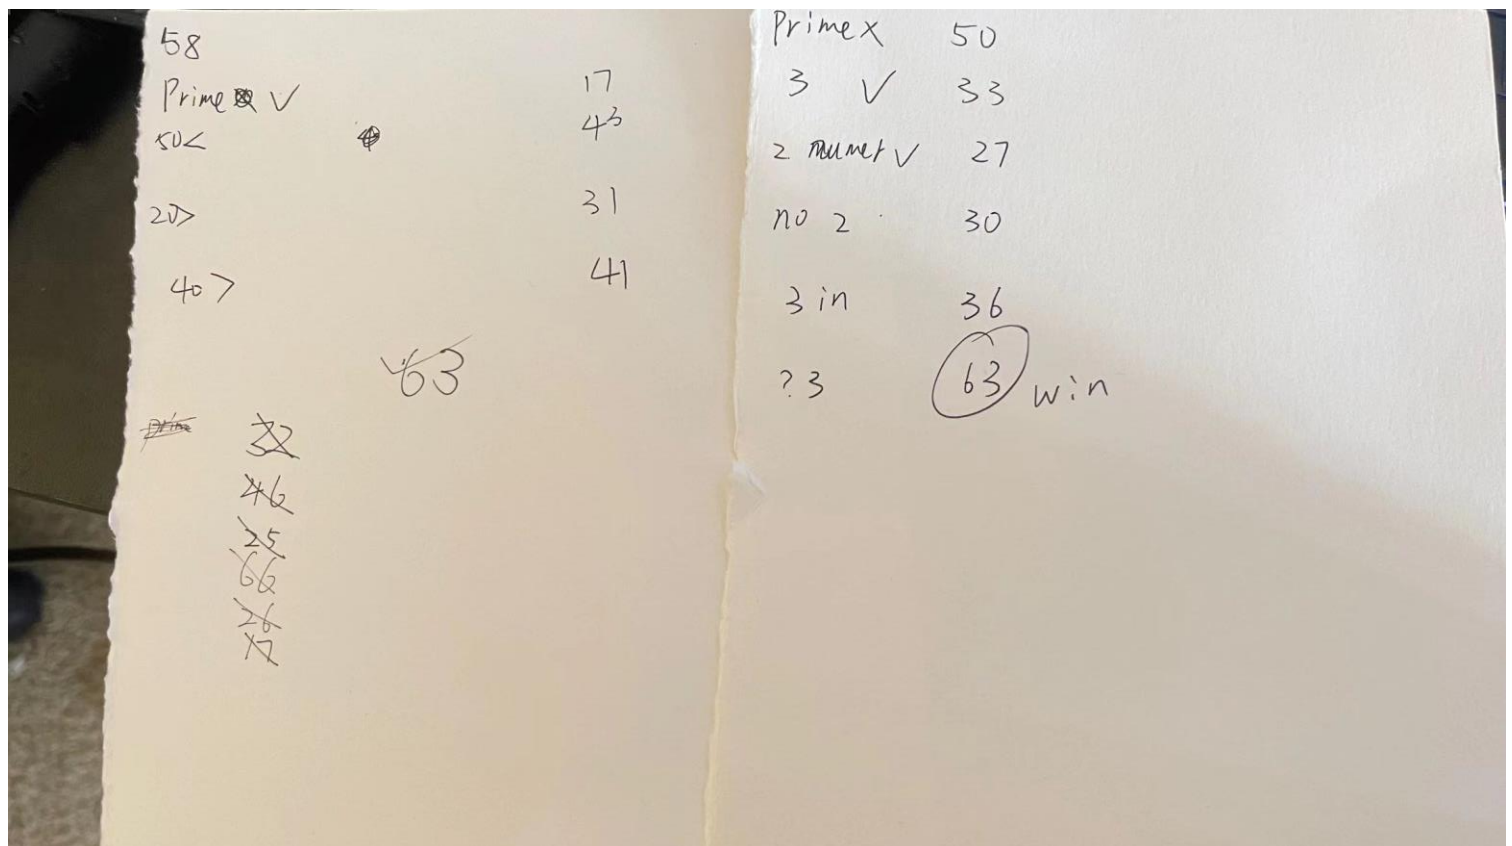 58
Prime ✓
17
50<
43
20>
31
40>
41
63
Prime
32
46
25
66
26
17
Prime X 50
3 ✓ 33
2 ✓ 27
no 2 30
3 in 36
? 3 63 win